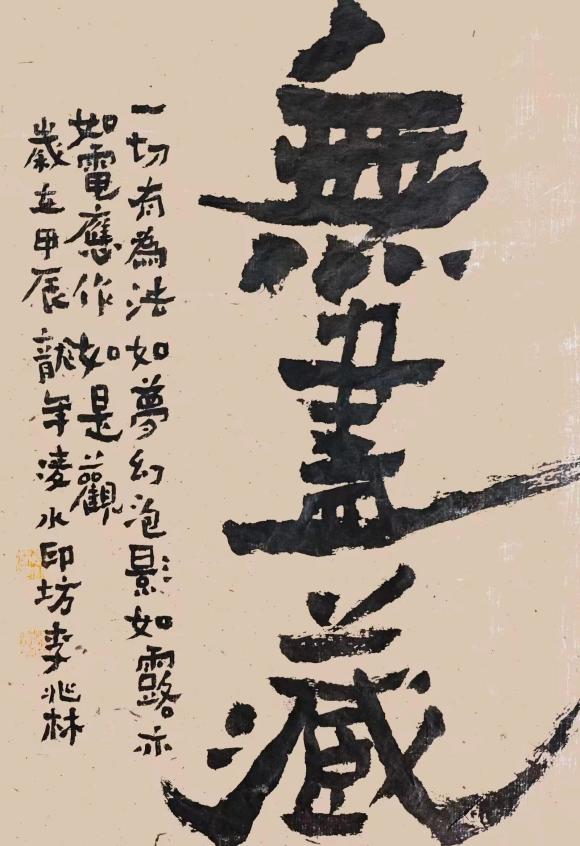 無盡藏
一切有為法如夢幻泡影如露亦
如電應作如是觀
歲在甲辰龍年凌水印坊李兆林